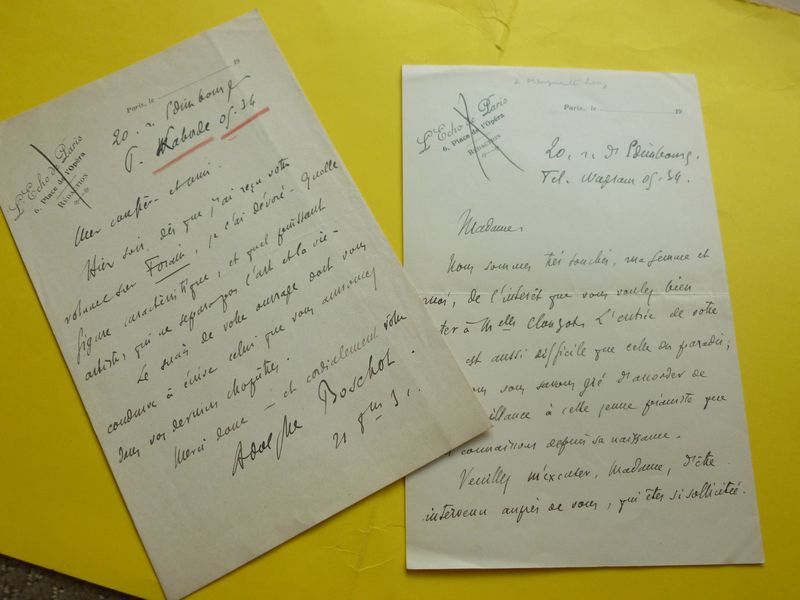 L'Echo de Paris
6, Place de l'Opéra
RÉDACTION
Paris, le 19
20. r. Edimbourg
T. Labode 05.34
Mon confrère et ami.
Hier soir, dès que j'ai reçu votre
volume sur Forain, je l'ai dévoré. Quelle
figure caractéristique, et quel puissant
artiste, qui ne sépare pas l'art et la vie.
Le succès de votre ouvrage doit vous
conduire à écrire celui que vous annoncez
dans vos derniers chapitres.
Merci donc — et cordialement vôtre
Adolphe Boschot.
21 31.
à Marguerite Long
L'Echo de Paris
6, Place de l'Opéra
RÉDACTION
Paris, le 19
20. r. d'Edimbourg.
Tel. Wagram 05.34.
Madame,
Nous sommes très touchés, ma femme et
moi, de l'intérêt que vous voulez bien
ter à Melle Clouzot. L'entrée de votre
est aussi difficile que celle du paradis;
vous savons gré d'accorder de
illance à cette jeune pianiste que
connaissons depuis sa naissance.
Veuillez m'excuser, Madame, d'être
intervenu auprès de vous, qui êtes si sollicitée.